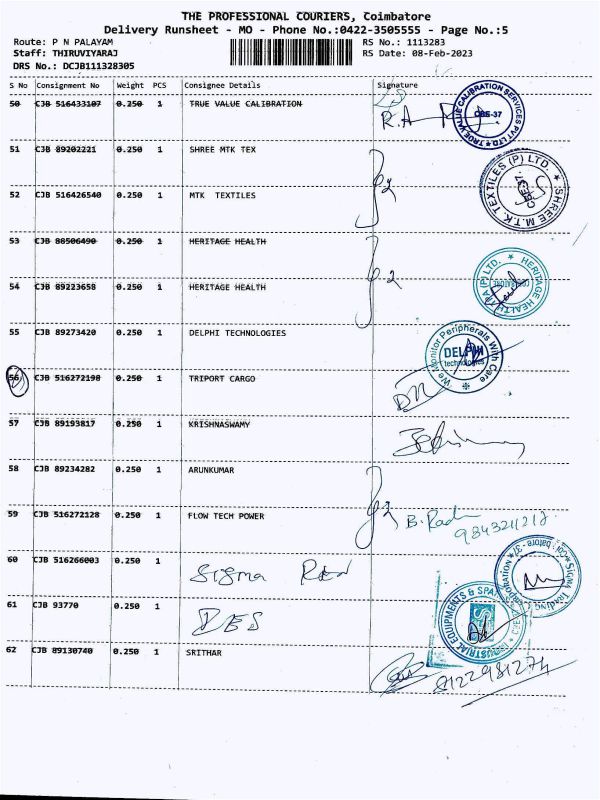 THE PROFESSIONAL COURIERS, Coimbatore
Delivery Runsheet - MO - Phone No.:0422-3505555 - Page No.:5
Route: P N PALAYAM RS No.: 1113283
Staff: THIRUVIYARAJ RS Date: 08-Feb-2023
DRS No.: DCJB111328305
S No Consignment No Weight PCS Consignee Details Signature
50 CJB 516433107 0.250 1 TRUE VALUE CALIBRATION
R.A
TRUE VALUE CALIBRATION SERVICES PVT LTD ★ CBE-37
51 CJB 89202221 0.250 1 SHREE MTK TEX
2
SHREE M.T.K. TEXTILES (P) LTD. ★
52 CJB 516426540 0.250 1 MTK TEXTILES
53 CJB 88506490 0.250 1 HERITAGE HEALTH
2
HERITAGE HEALTH (P) LTD. ★
54 CJB 89223658 0.250 1 HERITAGE HEALTH
55 CJB 89273420 0.250 1 DELPHI TECHNOLOGIES
We Monitor Peripherals With Care
DELPHI
technologies
56 CJB 516272198 0.250 1 TRIPORT CARGO
57 CJB 89193817 0.250 1 KRISHNASWAMY
58 CJB 89234282 0.250 1 ARUNKUMAR
2
59 CJB 516272128 0.250 1 FLOW TECH POWER
60 CJB 516266003 0.250 1 Sigma
61 CJB 93770 0.250 1 DES
INDUSTRIAL EQUIPMENTS &
62 CJB 89130740 0.250 1 SRITHAR
8122981274